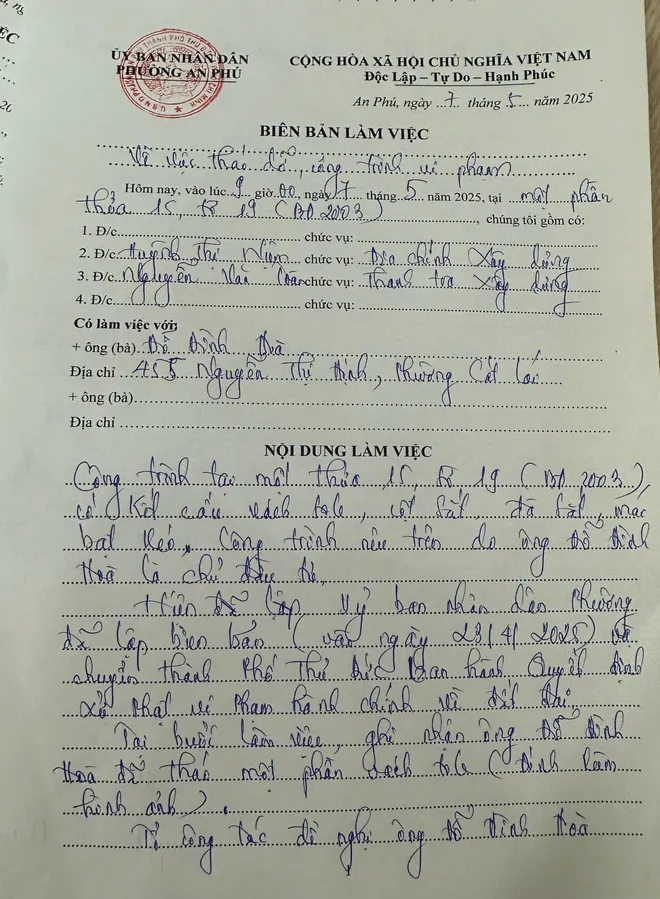 ỦY BAN NHÂN DÂN
PHƯỜNG AN PHÚ
CỘNG HÒA XÃ HỘI CHỦ NGHĨA VIỆT NAM
Độc Lập – Tự Do – Hạnh Phúc
An Phú, ngày 7 tháng 5 năm 2025
BIÊN BẢN LÀM VIỆC
Về việc tháo dỡ, công trình vi phạm
Hôm nay, vào lúc 9 giờ 00, ngày 7 tháng 5 năm 2025, tại một phần
thửa 15, tờ 19 (BĐ 2003), chúng tôi gồm có:
1. Đ/c chức vụ:
2. Đ/c Huỳnh Thị chức vụ: Địa chính Xây dựng
3. Đ/c Nguyễn Văn chức vụ: Thanh tra Xây dựng
4. Đ/c chức vụ:
Có làm việc với:
+ ông (bà) Đỗ Đình Hoà
Địa chỉ 455 Nguyễn Thị Định, Phường Cát Lái
+ ông (bà)
Địa chỉ
NỘI DUNG LÀM VIỆC
Công trình tại một thửa 15, tờ 19 (BĐ 2003),
có kết cấu vách tole, cột sắt, đà sắt, mái
bạt kéo. Công trình nêu trên do ông Đỗ Đình
Hoà là chủ đầu tư.
Hiện đã lập Uỷ ban nhân dân Phường
đã lập biên bản (vào ngày 23/4/2025) và
chuyển thành Phố Thủ Đức Ban hành Quyết định
xử phạt vi phạm hành chính về đất đai.
Tại buổi làm việc, ghi nhận ông Đỗ Đình
Hoà đã tháo một phần vách tole (Đính kèm
hình ảnh).
Tổ công tác đề nghị ông Đỗ Đình Hoà